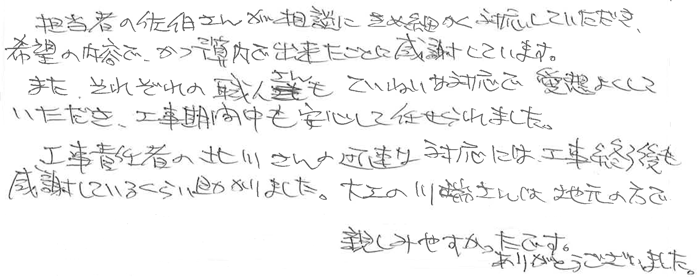 担当者の佐伯さんが相談にきめ細かく対応していただき、
希望の内容で、かつ予算内で出来たことに感謝しています。
また、それぞれの職人さんも ていねいな対応で 愛想よくして
いただき、工事期間中も安心して任せられました。
工事責任者の北川さんの迅速な対応には、工事終了後も
感謝しているくらい助かりました。大工の川端さんは地元の方で
親しみやすかったです。
ありがとうございました。